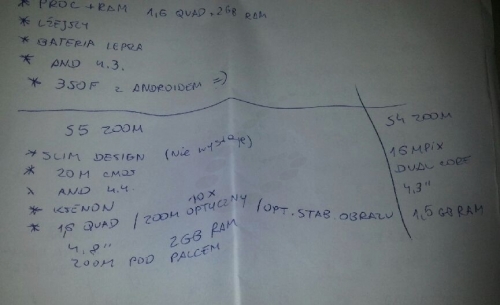 * PROC + RAM 1,6 QUAD, 2GB RAM
* LŻEJSZY
* BATERIA LEPSZA
* AND 4.3.
* 350F Z ANDROIDEM =)
S5 ZOOM
* SLIM DESIGN (nie wystaje)
* 20M CMOS
* AND 4.4.
* KSENON
* 1,6 QUAD / ZOOM OPTYCZNY 10X / OPT. STAB. OBRAZU
4,8" 2GB RAM
ZOOM POD PALCEM
S4 ZOOM
16MPIX
DUAL CORE
4,3"
1,5 GB RAM